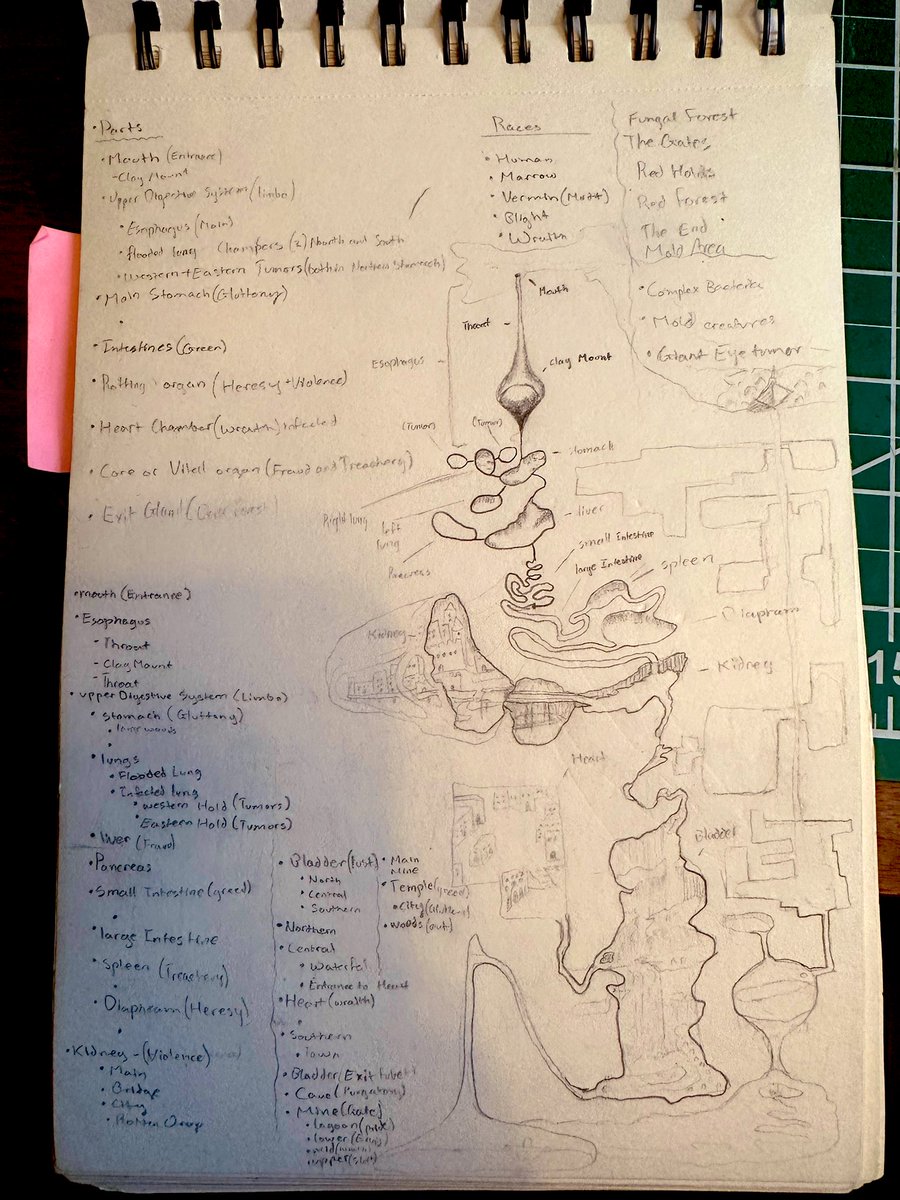 • Parts
• Mouth (Entrance)
- Clay Mount
• Upper Digestive System (Limbo)
• Esophagus (Main)
• Flooded lung Chambers (2) North and South
• Western + Eastern Tumors (both in Northern Stomach)
• Main Stomach (Gluttony)
• Intestines (Green)
• Rotting organ (Heresy + Violence)
• Heart Chamber (Wrath) infected
• Core or Vitall organ (Fraud and Treachery)
• Exit Gland
Races
• Human
• Marrow
• Vermin (Mutt)
• Blight
• Wraith
Fungal Forest
The Gates
Red Holds
Red Forest
The End
Mold Area
• Complex Bacteria
• Mold creatures
• Giant Eye tumor
Mouth
Throat
Esophagus
Clay Mount
(Tumor)
(Tumor)
Stomach
Right lung
left lung
liver
Pancreas
small Intestine
large Intestine
spleen
Diapram
Kidney
Kidney
Heart
Bladder
• mouth (Entrance)
• Esophagus
- Throat
- Clay Mount
- Throat
• upper Digestive System (Limbo)
• stomach (Gluttony)
• lungs
• Flooded Lung
• Infected lung
• western Hold (Tumors)
• Eastern Hold (Tumors)
• liver (Fraud)
• Pancreas
• Small Intestine (greed)
• large Intestine
• Spleen (Treachery)
• Diaphram (Heresy)
• Kidney - (Violence)
• Main
• Bridge
• City
• Rotten Organ
• Bladder (lust)
• North
• Central
• Southern
• Northern
• Central
• Waterfall
• Entrance to Heart
• Heart (wrath)
• Southern
• Town
• Bladder (Exit tube)
• Cave (Purgatory)
• Mine (Gate)
• lagoon
• lower
• upper
• Main Mine
• Temple (greed)
• City
• woods (out)
15